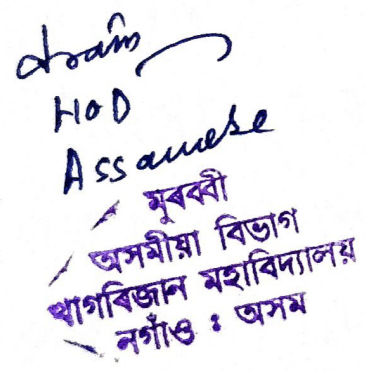 HOD
Assamese
মুৰব্বী
অসমীয়া বিভাগ
খাগৰিজান মহাবিদ্যালয়
নগাঁও : অসম